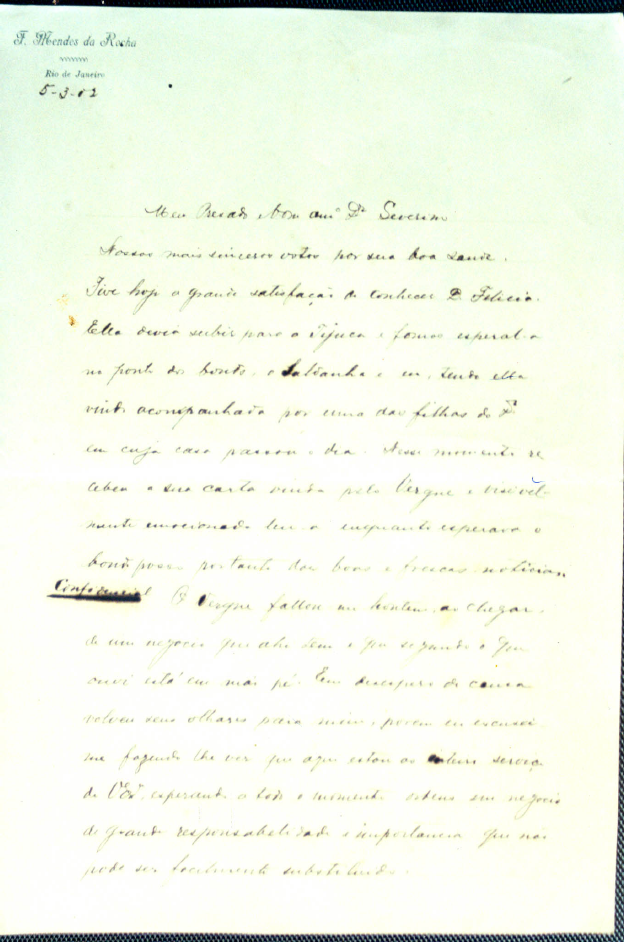 F. Mendes da Rocha
Rio de Janeiro
5-3-02
Meu Presado e bom amº Dr Severino
Nossos mais sinceros votos por sua boa saude.
Tive hoje a grande satisfação de conhecer D. Felicia.
Ella devia subir para a Tijuca e fomos esperal-a
no ponto dos bonds, o Saldanha e eu, tendo ella
vindo acompanhada por uma das filhas do
em cuja casa passou o dia. Nesse momento re
cebeu a sua carta vinda pelo Vergne e visivel-
mente emocionada leu-a enquanto esperava o
bond portanto das boas e frescas noticias
Confidencial O Vergne fallou me hontem, ao chegar,
de um negocio que ahi tem e que segundo o que
ouvi está em máo pé. Em desespero de causa
volveu seus olhares para mim, porem eu excusei
me fazendo lhe ver que aqui estou ao inteiro serviço
de V. Exª esperando a todo o momento ordens em negocio
de grande responsabilidade e importancia que não
pode ser facilmente substituido.